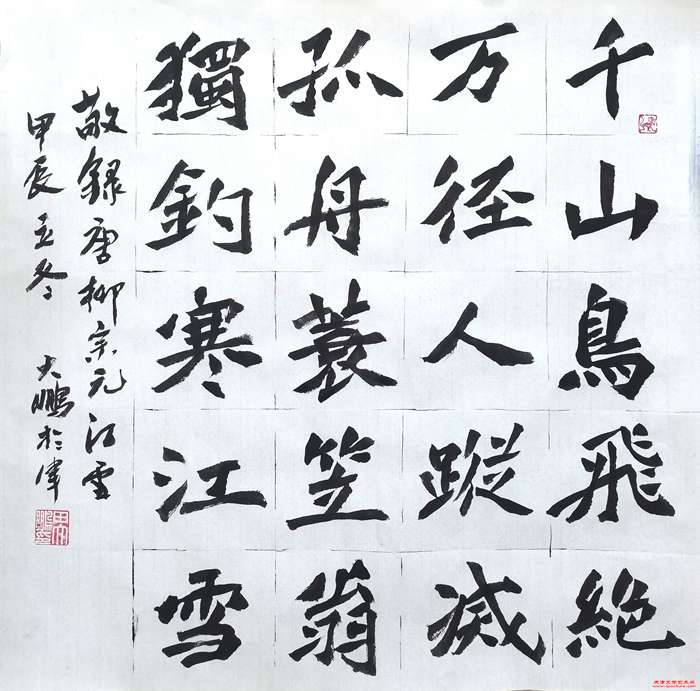 千山鳥飛絶
万径人蹤滅
孤舟蓑笠翁
獨釣寒江雪
敬録唐柳宗元江雪
甲辰立冬 大鵬於津